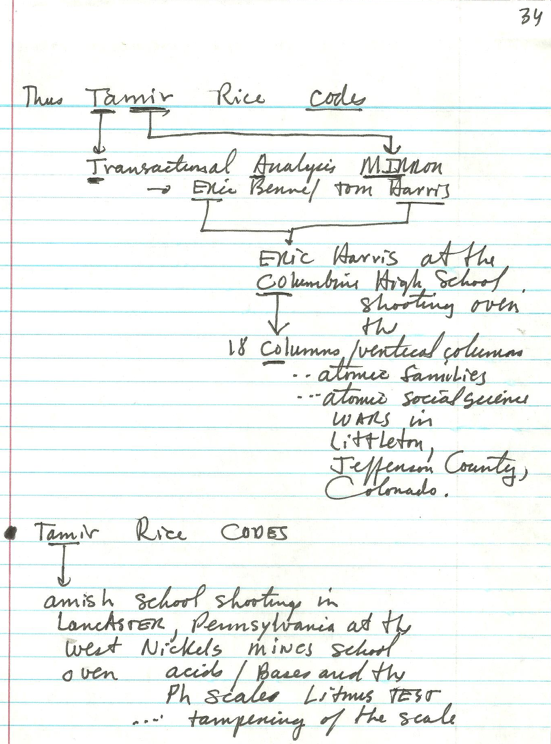 34
Thus Tamir Rice codes
Transactional Analysis MIRROR
→ Eric Benne/ tom Harris
Eric Harris at the
Columbine High School
shooting over
the
18 Columns/vertical columns
...atomic families
...atomic social science
WARS in
Littleton,
Jefferson County,
Colorado.
• Tamir Rice CODES
amish school shooting in
LancASTER, Pennsylvania at the
West Nickels mines school
over acids/Bases and the
Ph Scales Litmus TEST
.... tampering of the scale